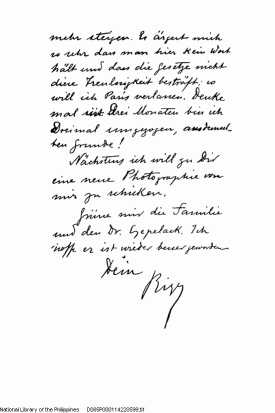 mehr steigen. Es ärgert mich
so sehr dass man hier kein Wort
hält und dass die Gesetze nicht
diese Treulosigkeit bestraft: so
will ich Paris verlassen. Denke
mal seit Drei Monaten bin ich
Dreimal umgezogen, aus demsel-
ben Grunde!
Nächstens ich will zu Dir
eine neue Photographie von
mir zu schicken.
Grüsse mir die Familie
und den Dr. Czepelack. Ich
hoffe er ist wieder besser geworden
Dein
Rizal
National Library of the Philippines D085P000114220599.tif